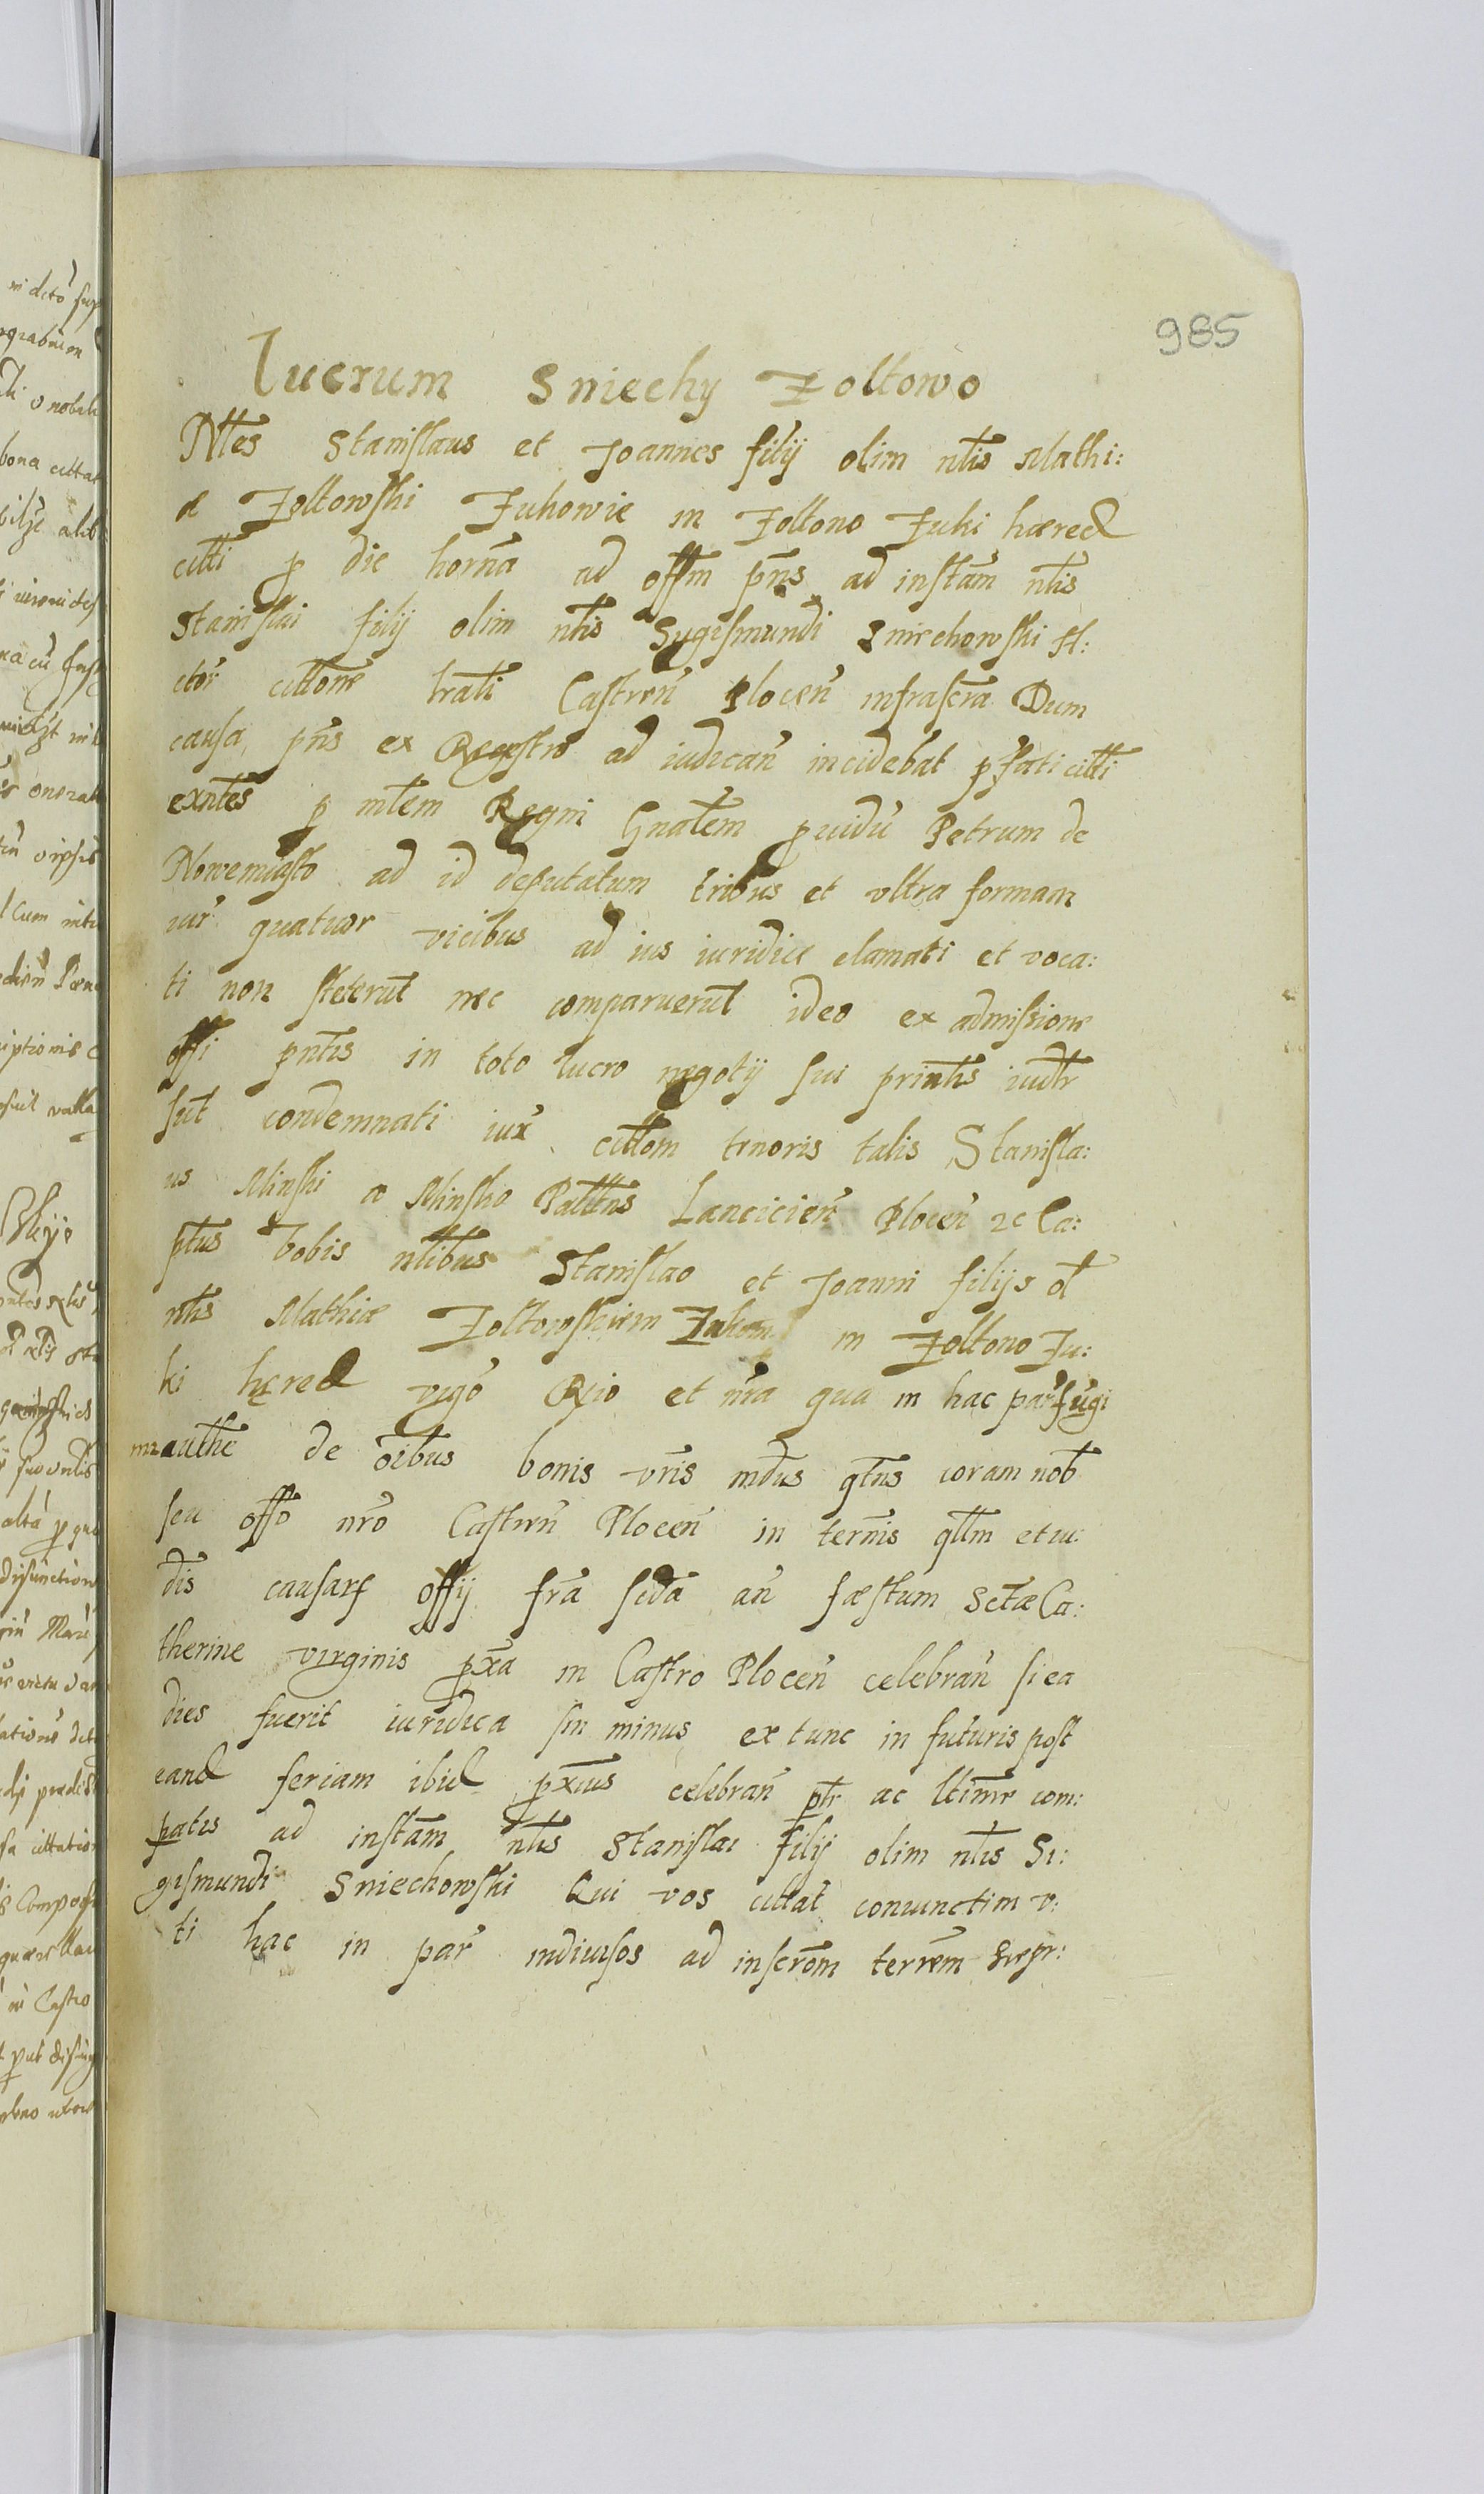 985
Lucrum Sniechy Żołtowo
Nłtes Stanislaus et Joannes filij olim nłis Mathi:
æ Żołtowski Żukowie in Żołtono Żuki hæred
citti p die horna ad offm pns ad instam nłis
Stanislai filij olim nłis Sygismundi Sniechowski H:
ctor cittone łrali Castren Plocen infrascra Dum
causa pns ex Regestro ad iudican incidebat pfati citti
exntes p młem Regni Gnałem puidu Petrum de
Nowemiasto ad id deputatum tribus et vltra formam
iur quatuor vicibus ad ius iuridice clamati et voca:
ti non steterut nec comparuerut ideo ex admissione
offi pntis in toto lucro negotij sui prinłis iudtr
sut condemnati iux cittom tenoris talis Stanisla:
us Minski a Minsko Pałtns Lancicien Plocen 2c Ca:
ptus Vobis nłibus Stanislao et Joanni filijs ol
nłis Mathiæ Żołtowskiem Żukom in Żołtono Żu:
ki hæred vigo Rio et nra qua in hac par fugi
m authe de oibus bonis vris mdus qtns coram nob
seu offo nro Castren Plocen in ternis qllm et iu:
dis causarf offij fra scda an fæstum Sctæ Ca:
therine virginis pxa in Castro Plocen celebran si ea
dies fuerit iuridica sin minus ex tunc in futuris post
eand feriam ibid pxius celebran ptr ac łtime com:
patis ad instam nłis Stanislai filij olim nłis Si:
gismundi Sniechowski Qui vos cittat coniunctim v:
ti hac in par indiuisos ad inscrom terrem